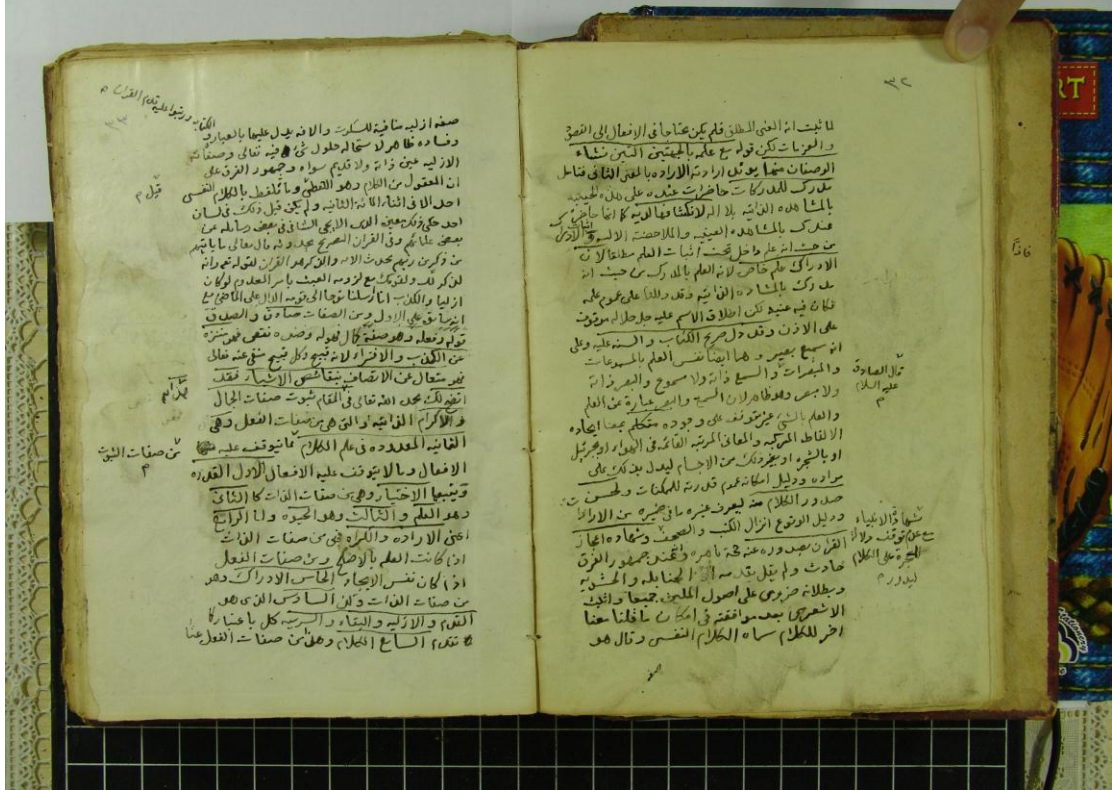 ٣٢
لما ثبت انه الغنى المطلق فلم يكن محتاجا فى الافعال الى القصود
والعزمات لكن قوله مع علمه بالجهتين اللتين منشاء
الوصفان منها يوئل ارادته الاراده بالمعنى الثانى فتامل
مدرك للمدركات حاضرات عنده على هذه الحيثيه
بالمشاهده الذاتيه بلا اله لانكشافها لديه كما انها حاضرات
عندك بالمشاهده العينيه والملاحضة الاليه والادراك
من حيث انه علم داخل تحت اثبات العلم مطلقا لان
الادراك علم خاص لانه العلم بالمدرك من حيث انه
مدرك بالمشاهده الذاتيه وقد دللنا على عموم علمه
فكان فيه غنيه لكن اطلاق الاسم عليه جل جلاله موقوف
على الاذن وقد دل صريح الكتاب والسنه عليه وعلى
انه سميع بصير وهما ايضا نفس العلم بالمسموعات
والمبصرات والسمع ذاته ولا مسموع والبصر ذاته
ولا مبصر وهو ظاهر لان السمع والبصر عبارة عن العلم
والعلم بالشئ غير متوقف على وجوده متكلم بمعنا ايجاده
الالفاظ المركبه والمعانى المرتبه القائمه فى الهواء او بجبرئيل
او بالشجره او بغير ذلك من الاجسام ليدل بذلك على
مراده ودليل امكانه عموم قدرته للممكنات ولحسن
صدور الكلام منه ليعرف غيره ما فى ضميره من الارادات
ودليل الوقوع انزال الكتب والصحف وشهادة اعجاز
القران بصدوره عنه حجة باهره واتفق جمهور الفرق
حادث ولم يقل بقدمه الا الحنابله والحشويه
وبطلانه ضرورى على اصول الملمين جميعا واثبت
الاشعرى بعد موافقته فى امكان ما قلنا معنا
اخر للكلام سماه الكلام النفسى وقال هو
صفه
قال الصادق
عليه السلام
شهادة الانبياء
مع عدم توقف دلالة
المعجزة على الكلام
ليدور
٣٣
صفه ازليه منافية للسكوت والافه يدل عليها بالعباره و
الكتابه ورتبوا عليه قدم القران
وفساده ظاهر لاستحاله حلول شئ فيه تعالى وصفاته
الازليه عين ذاته ولا قديم سواه وجمهور الفرق على
ان المعقول من الكلام وهو اللفظى وما تلفظ بالكلام النفسى
احد الا فى اثناء المائه الثانيه ولم يكن قبل ذلك فى لسان
احد حكى ذلك بعض
بعض علمائهم وفى القران التصريح بحدوثه قال تعالى ما ياتيهم
من ذكر من ربهم محدث الايه والذكر هو القران لقوله تعم وانه
لذكر لك ولقومك مع لزومه العبث بامر المعدوم لو كان
ازليا والكذب انا ارسلنا نوحا الى قومه الدال على الماضى مع
انه سابق على الاول ومن الصفات صادق والصدق
قوله وفعله وهو صفة كمال فهو له وضده نقص فهو منزه
عن الكذب والافتراء لانه قبيح وكل قبيح منفى عنه تعالى
فهو متعال عن الاتصاف بنقائص الاشياء فقد
اتضح لك بحمد الله تعالى فى المقام ثبوت صفات الجمال
والاكرام الذاتيه او التى هى من صفات الفعل وهى
الثمانيه المعدوده فى علم الكلام مما يتوقف عليه
الافعال وما لا يتوقف عليه الافعال الاول القدره
ويتبعها الاختيار وهى من صفات الذات كا الثانى
وهو العلم والثالث وهو الحيوه واما الرابع
اعنى الاراده والكراه فهى من صفات الذات
اذا كانت العلم بالاصلح ومن صفات الفعل
اذا كان نفس الايجاد الخامس الادراك وهو
من صفات الذات وكذا السادس الذى هو
القدم والازليه والبقاء والسرمديه كل باعتبار كما
تقدم السابع الكلام وهى من صفات الفعل
قيل
من صفات الثبوت